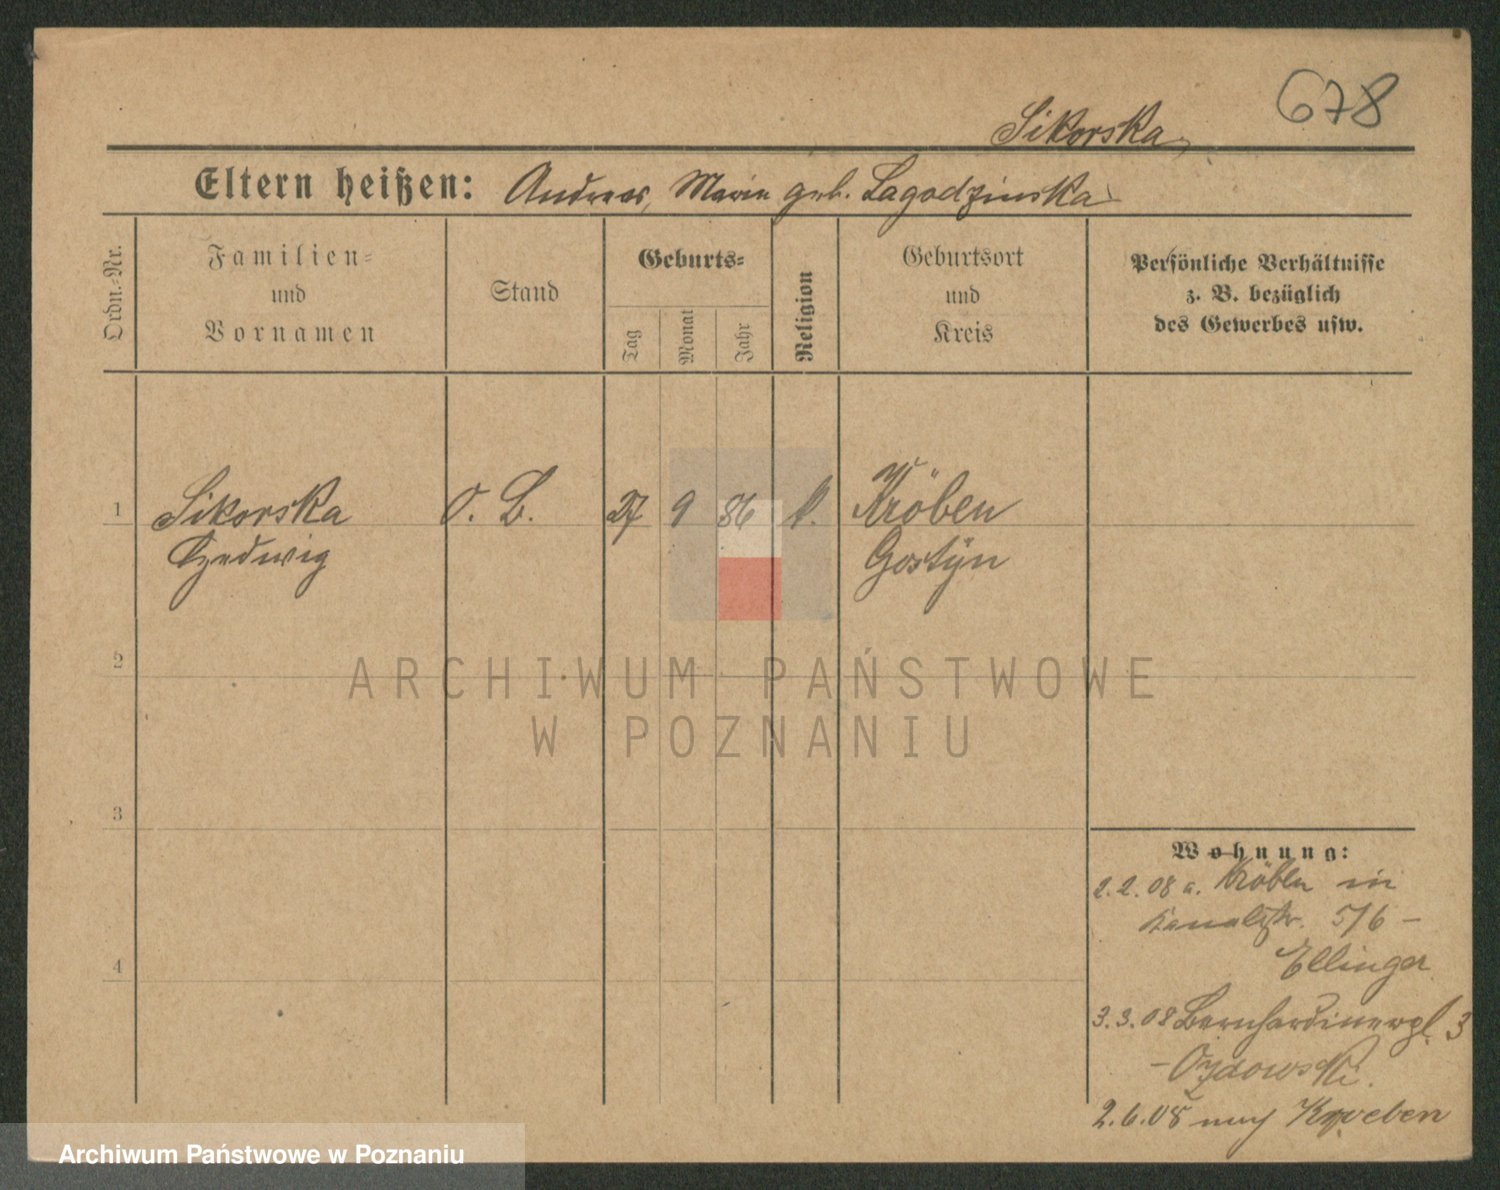 678
Sikorska
Eltern heißen: Andreas, Marie geb. Lagodzinska
Ordn.-Nr.
Familien-
und
Vornamen
Stand
Geburts-
Tag
Monat
Jahr
Religion
Geburtsort
und
Kreis
Persönliche Verhältnisse
z. B. bezüglich
des Gewerbes usw.
1 Sikorska O. B. 27 9 86 k. Kröben
Hedwig Gostyn
2
3
4
ARCHIWUM PAŃSTWOWE
W POZNANIU
Wohnung:
2.2.08 a. Kröben in
Kanalstr. 5/6 –
Ellinger
3.3.08 Bernhardinerpl. 3
– Ozdowski.
2.6.08 nach Kroeben
Archiwum Państwowe w Poznaniu